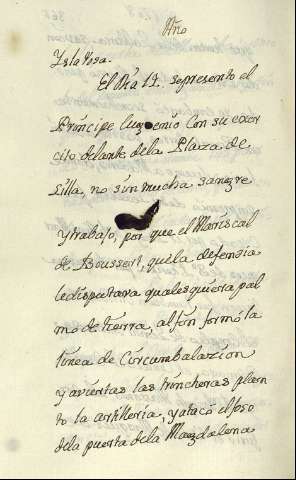 Año
Ystarosa.
El Dia 12. sepresento el
Principe Eugenio con su exer
cito delante dela Plaza de
Lilla, no sin mucha sangre
y trabajo, por que el Mariscal
de Boussert, que la defendia
ledisputava qualesquiera pal
mo de tierra, al fin formó la
linea de Circumbalazion
y aviertas las trincheras plan
to la artilleria, y atacó el foso
dela puerta dela Magdalena